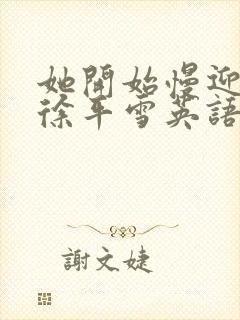 她開始慢迎
徐平雪英語
謝文婕